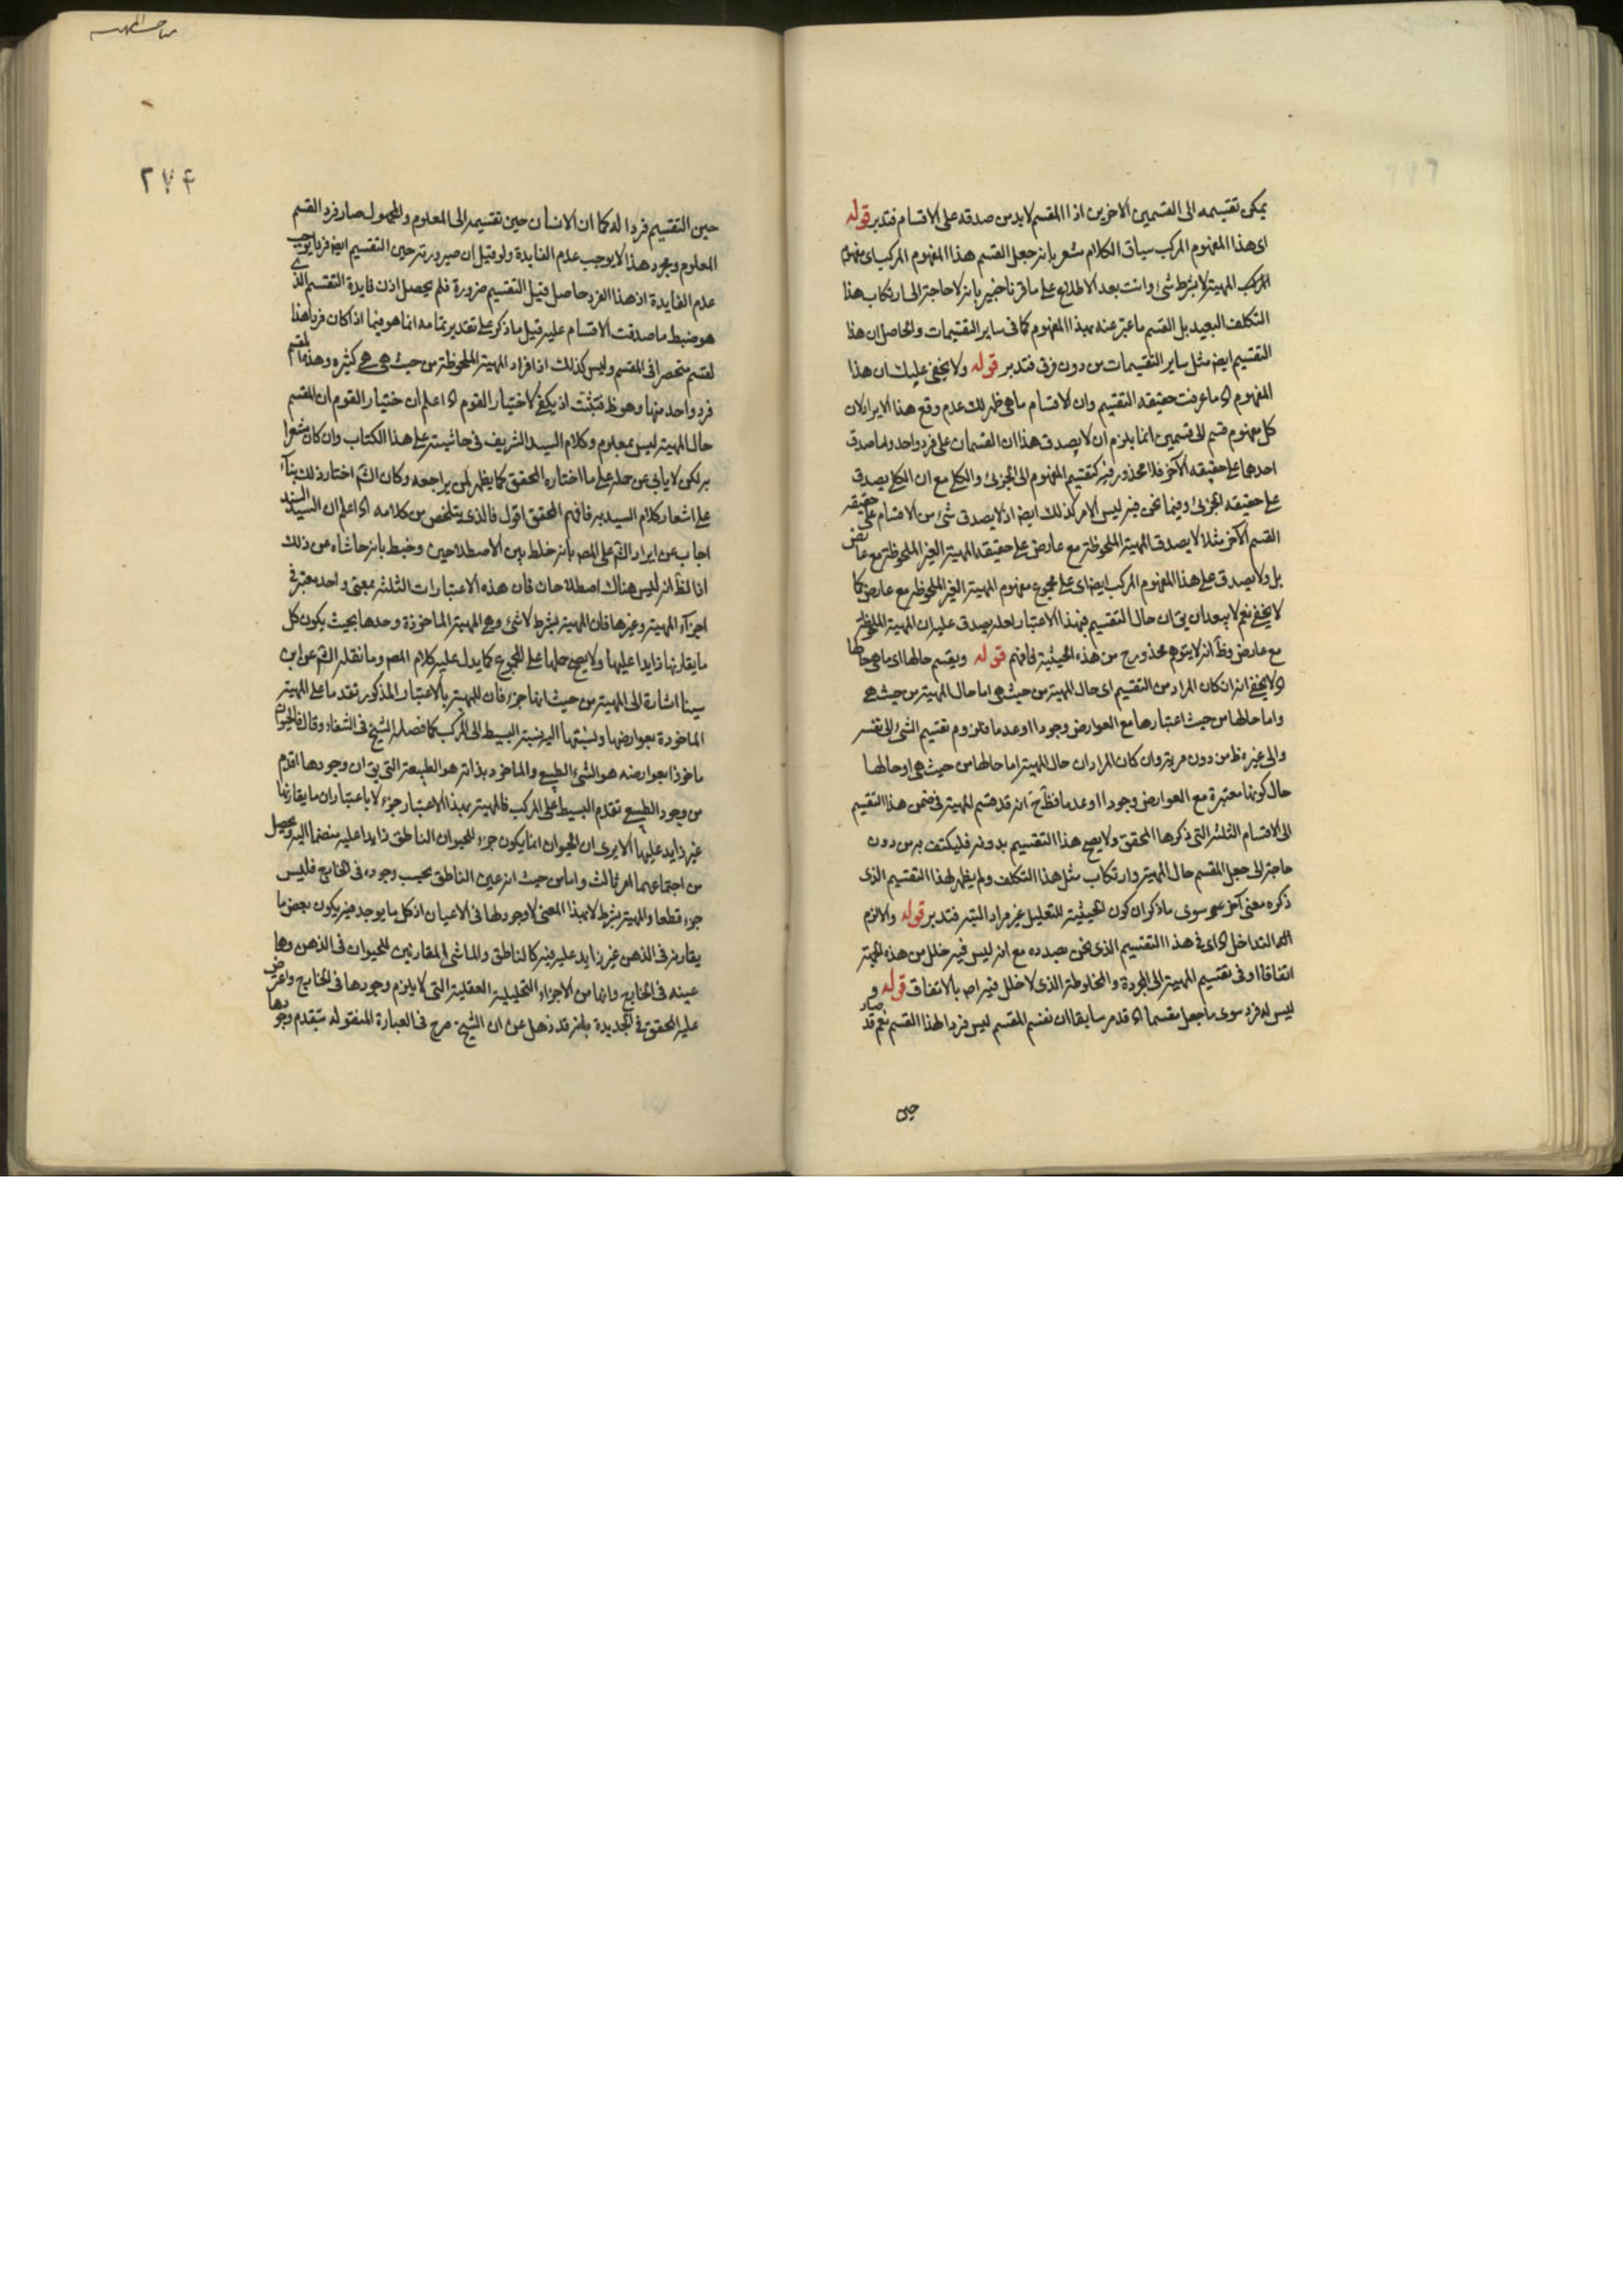 يمكن تقسيمه الى القسمين الاخرين اذ المقسم لابد من صدقه على الاقسام فتدبر قوله
اى هذا المفهوم المركب سياق الكلام مشعر بانه جعل القسم هذا المفهوم المركب اى مفهوم
المركب المهية لا بشرط شئ وانت بعد الاطلاع على ما قررنا خبير بانه لا حاجة الى ارتكاب هذا
التكلف البعيد بل القسم ما عبر عنه بهذا المفهوم كما فى ساير التقسيمات والحاصل ان هذا
التقسيم ايضا مثل ساير التقسيمات من دون فرق فتدبر قوله ولا يخفى عليك ان هذا
المفهوم اه ما عرفت حقيقة التقسيم وان الاقسام ماهى ظهر لك عدم وقع هذا الايراد لان
كل مفهوم قسم الى قسمين انما يلزم ان لا يصدق هذا ان القسمان على فرد واحد واما صدق
احدهما على حقيقة الآخر فلا محذور فيه كتقسيم المفهوم الى الجزئى والكلى مع ان الكلى يصدق
على حقيقة الجزئى وفيما نحن فيه ليس الامر كذلك ايضا اذ لا يصدق شئ من الاقسام على حقيقة
القسم الآخر مثلا لا يصدق المهية الملحوظة مع عارض على حقيقة المهية الغير الملحوظة مع عارض
بل ولا يصدق على هذا المفهوم المركب ايضا اى على مجموع مفهوم المهية الغير الملحوظة مع عارض كما
لا يخفى نعم لا يبعد ان يق ان حال التقسيم فبهذا الاعتبار لعله يصدق عليه ان المهية الملحوظة
مع عارض وظ انه لا يتوهم محذور ح من هذه الحيثية فافهم قوله ويقسم حالها اى ماهى حالها
اه لا يخفى انه ان كان المراد من التقسيم اى حال المهية من حيث هى اما حال المهية من حيث هى
واما حالها من حيث اعتبارها مع العوارض وجودا او عدما فلزوم تقسيم الشئ الى نفسه
والى غيره ظ من دون مرية وان كان المراد ان حال المهية اما حالها من حيث هى او حالها
حال كونها معتبرة مع العوارض وجودا او عدما فظ ح انه قد قسم المهية فى ضمن هذا التقسيم
الى الاقسام الثلثة التى ذكرها المحقق ولا يصح هذا التقسيم بدونه فليكتف به من دون
حاجة الى جعل المقسم حال المهية وارتكاب مثل هذا التكلف ولم يظهر لهذا التقسيم الذى
ذكره معنى آخر سوى ما ذكر ان كون الحيثية للتعليل غير مراد البتة فتدبر قوله والا لزم
التداخل اه اى فى هذا التقسيم الذى نحن بصدده مع انه ليس فيه خلل من هذه الجهة
اتفاقا او فى تقسيم المهية الى المجردة والمخلوطة الذى لا خلل فيه اصلا بالاتفاق قوله و
ليس له فرد سوى ما جعل مقسما اه قد مر سابقا ان نفس المقسم ليس فردا لهذا القسم نعم قد صار
حين
٢٧۴
حين التقسيم فردا له كما ان الانسان حين تقسيمه الى المعلوم والمجهول صار فرد القسم
المعلوم ومجرد هذا لا يوجب عدم الفايدة ولو قيل ان صيرورته حين التقسيم ايضا فردا يوجب
عدم الفايدة اذ هذا الفرد حاصل قبل التقسيم ضرورة فلم يحصل اذن فايدة التقسيم الذى
هو ضبط ما صدقت الاقسام عليه قيل ما ذكر على تقدير تمامه انما هو فيما اذا كان فرد هذا
القسم منحصرا فى المقسم وليس كذلك اذ افراد المهية الملحوظة من حيث هى هى كثيرة وهذه المقسم
فرد واحد منها وهو ظ فتثبت اذ يكفى لاختيار القوم اه اعلم ان اختيار القوم ان المقسم
حال المهية ليس بمعلوم وكلام السيد الشريف فى حاشيته على هذا الكتاب وان كان مشعرا
به لكن لا يابى عن حمله على ما اختاره المحقق كما يظهر لمن يراجعه وكان الشم اختار ذلك بناء
على اشعار كلام السيد به فافهم المحقق اقول فالذى يتلخص من كلامه اه اعلم ان السيد السند
اجاب عن ايراد الشم على المص بانه خلط بين الاصطلاحين وخبط بانه حاشاه عن ذلك
اذ الظ انه ليس هناك اصطلاحان فان هذه الاعتبارات الثلثة بمعنى واحد معتبرة فى
اجزاء المهية وغيرها فان المهية بشرط لا شئ وهى المهية الماخوذة وحدها بحيث يكون كل
ما يقارنها زايدا عليها ولا يصح حملها على المجموع كما يدل عليه كلام المص وما نقله الشم عن ابن
سينا اشارة الى المهية من حيث انها جزء فان للمهية بالاعتبار المذكور تقدما على المهية
الماخوذة بعوارضها ونسبتها اليه نسبة البسيط الى المركب كما فصله الشيخ فى الشفاء وقال فالحيوان
ماخوذا بعوارضه هو الشئ الطبيعى والماخوذ بذاته هو الطبيعة التى يق ان وجودها اقدم
من وجود الطبيعى تقدم البسيط على المركب فالمهية بهذا الاعتبار جزء لا باعتبار ان ما يقارنها
غير زايد عليها الا يرى ان الحيوان انما يكون جزء للحيوان الناطق زايدا عليه منضما اليه ويحصل
من اجتماعهما امر ثالث واما من حيث انه عين الناطق بحسب وجوده فى الخارج فليس
جزء قطعا والمهية بشرط لا بهذا المعنى لا وجود لها فى الاعيان اذ كل ما يوجد فيه يكون بعض ما
يقارنه فى الذهن غير زايد عليه فيه كالناطق والماشى المقارنين للحيوان فى الذهن وهما
عينه فى الخارج وانها من الاجزاء التحليلية العقلية التى لا يلزم وجودها فى الخارج واعترض
عليه المحقق فى الجديدة بانه قد ذهل عن ان الشيخ صرح فى العبارة المنقولة بتقدم وجودها